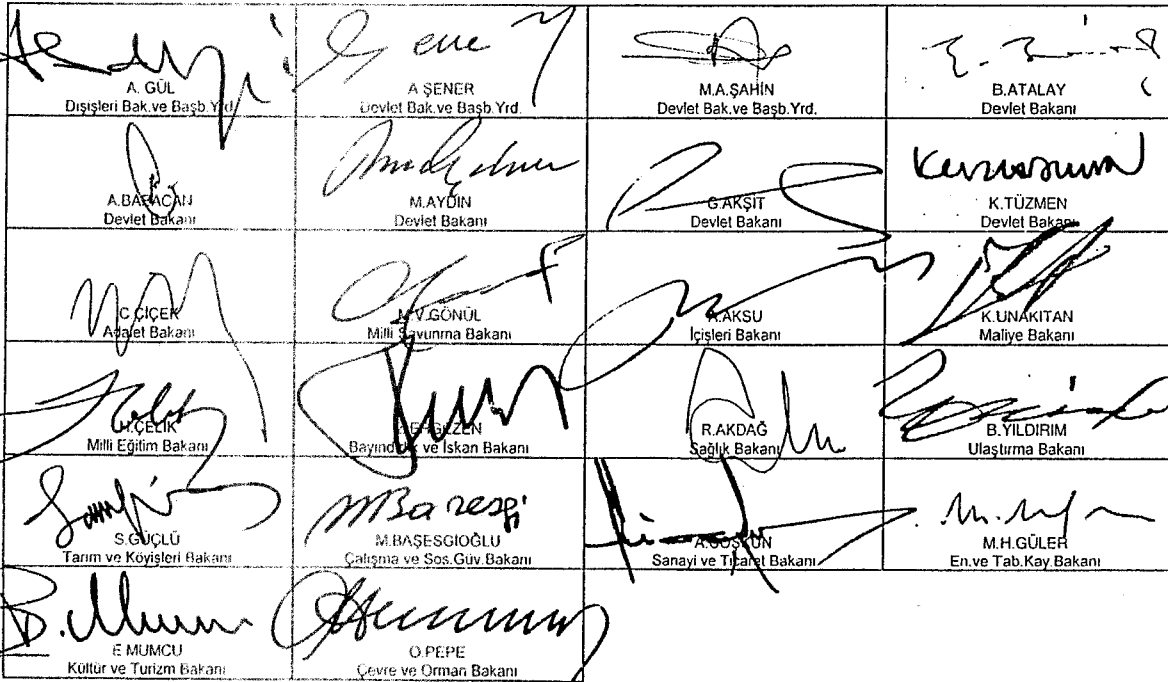 A. GÜL
Dışişleri Bak.ve Başb.Yrd.
A ŞENER
Devlet Bak.ve Başb.Yrd.
M.A.ŞAHİN
Devlet Bak.ve Başb.Yrd.
B.ATALAY
Devlet Bakanı
A.BABACAN
Devlet Bakanı
M.AYDIN
Devlet Bakanı
G.AKŞİT
Devlet Bakanı
K.TÜZMEN
Devlet Bakanı
C.ÇİÇEK
Adalet Bakanı
M.V.GÖNÜL
Milli Savunma Bakanı
A.AKSU
İçişleri Bakanı
K.UNAKITAN
Maliye Bakanı
H.ÇELİK
Milli Eğitim Bakanı
Bayındırlık ve İskan Bakanı
R.AKDAĞ
Sağlık Bakanı
B.YILDIRIM
Ulaştırma Bakanı
S.GÜÇLÜ
Tarım ve Köyişleri Bakanı
M.BAŞESGİOĞLU
Çalışma ve Sos.Güv.Bakanı
A.COŞKUN
Sanayi ve Ticaret Bakanı
M.H.GÜLER
En.ve Tab.Kay.Bakanı
E.MUMCU
Kültür ve Turizm Bakanı
O.PEPE
Çevre ve Orman Bakanı